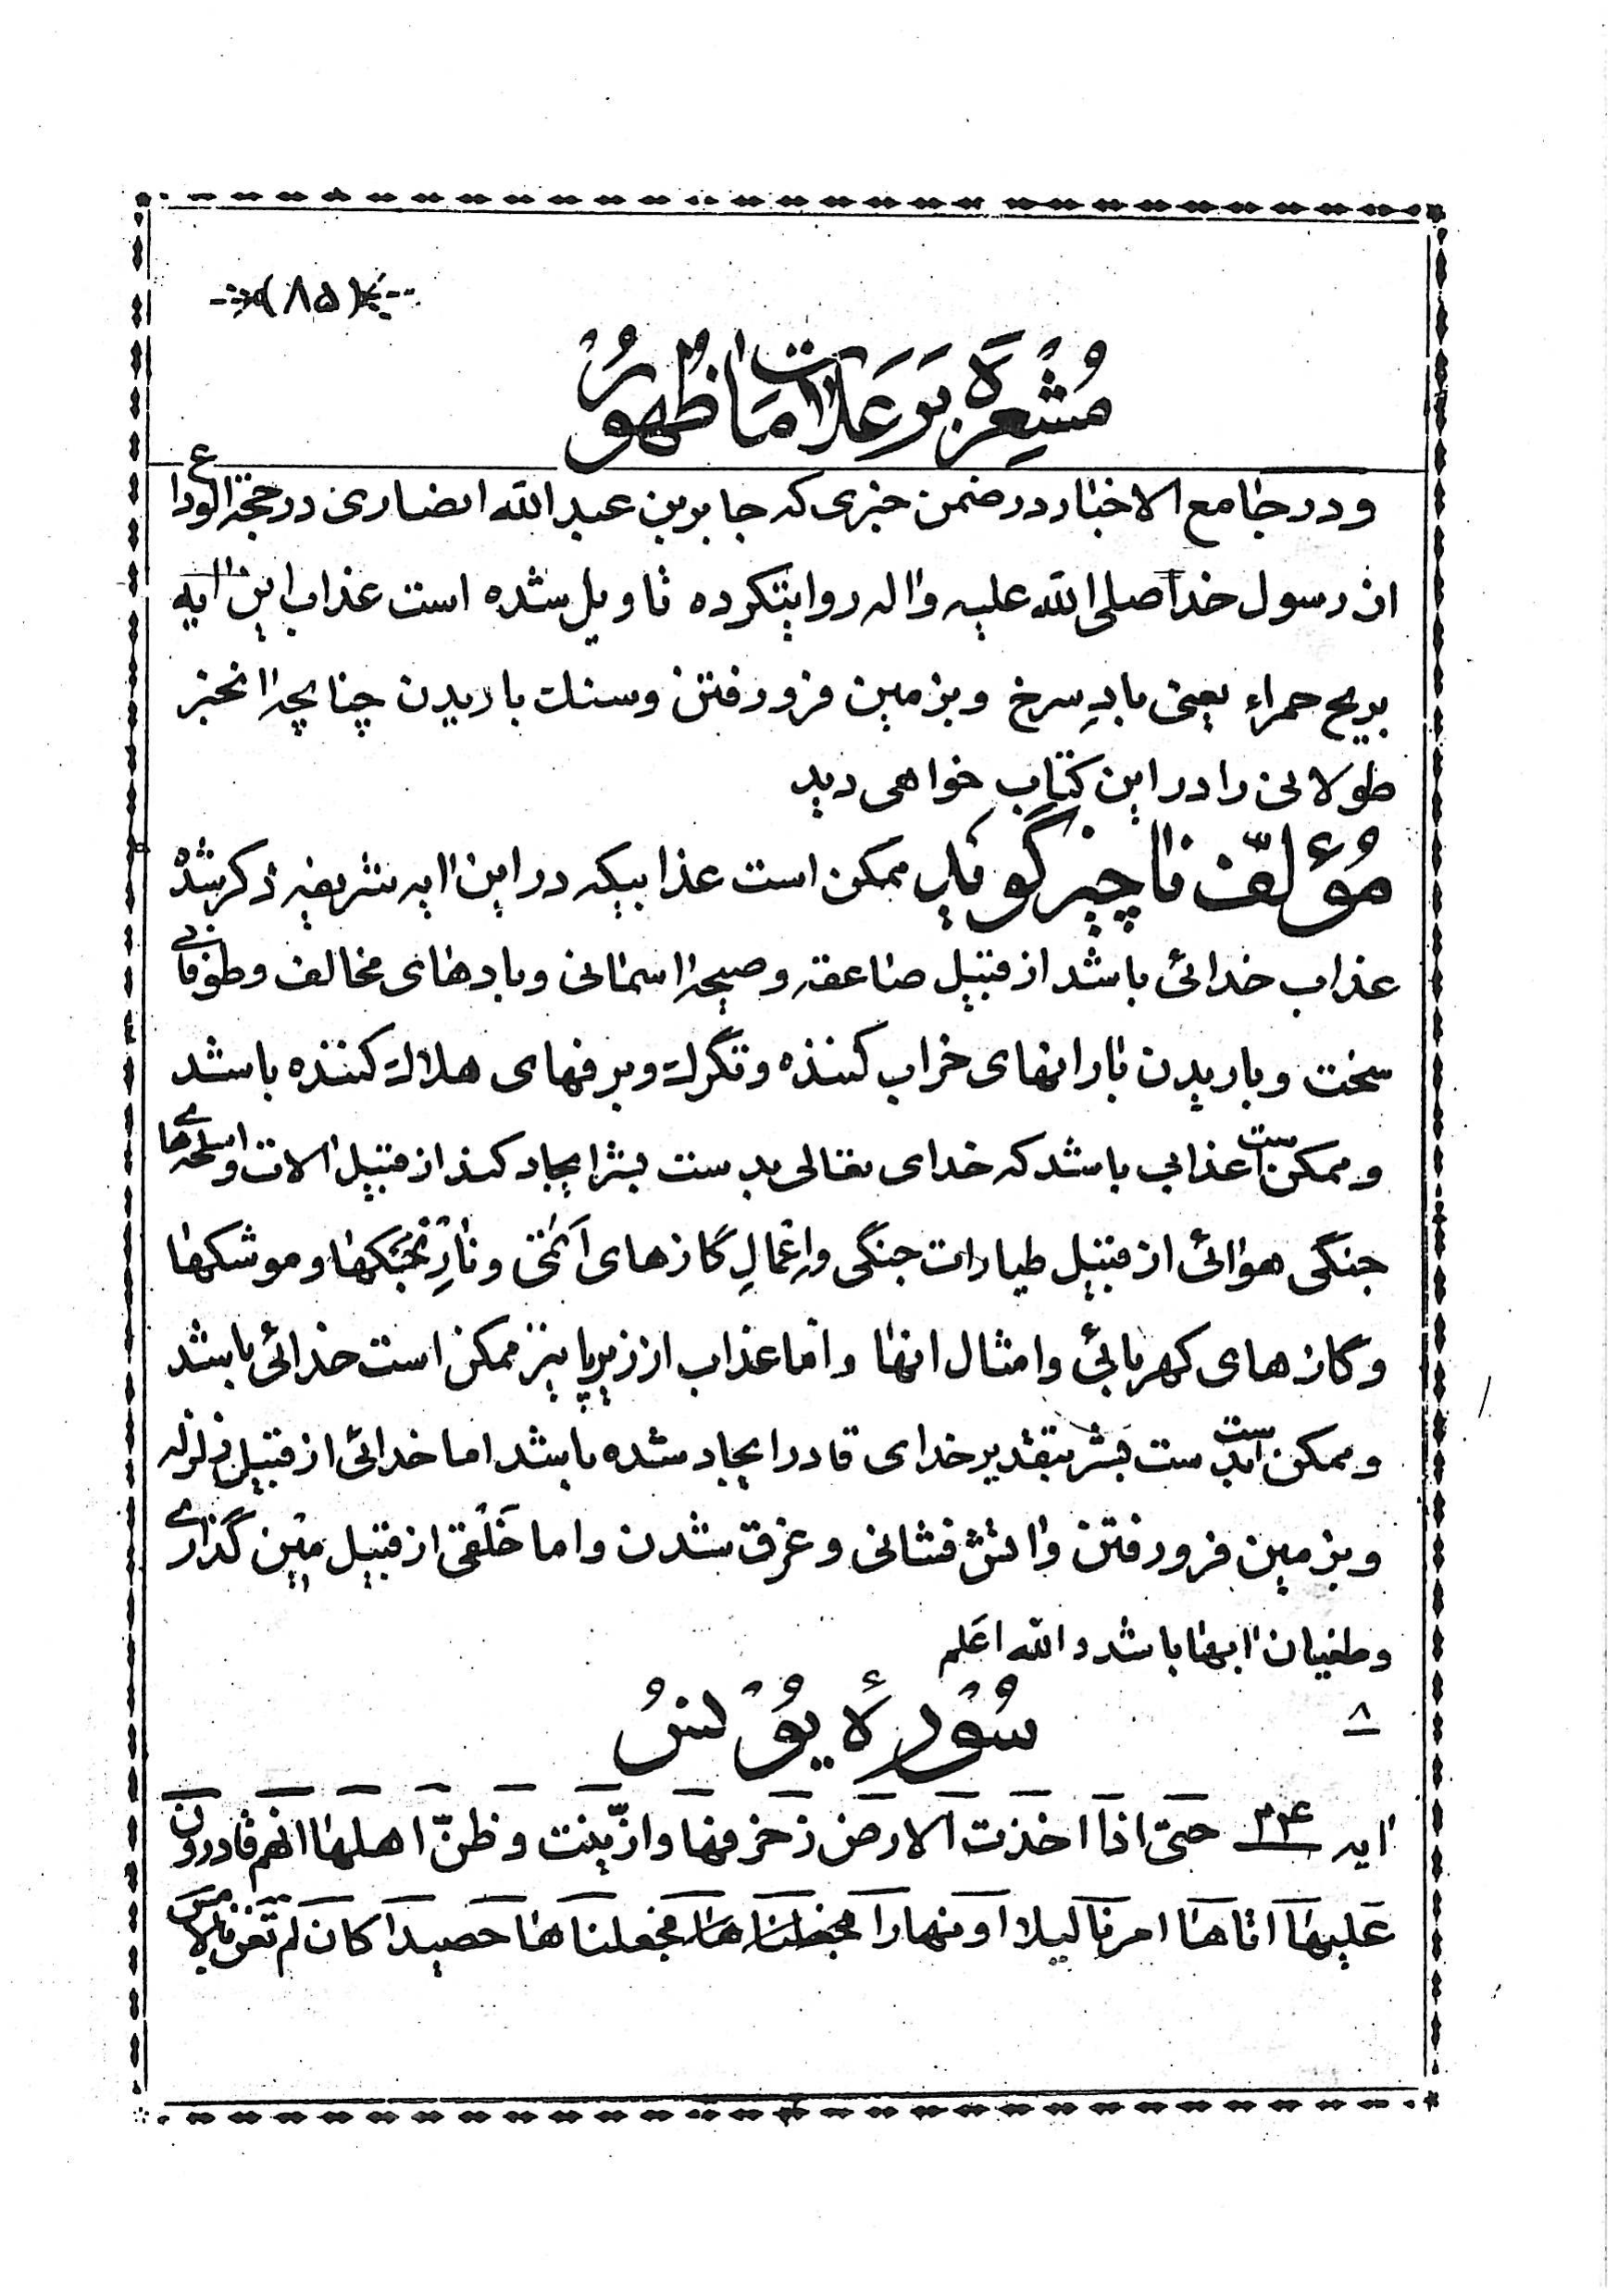 (۸۵)
مُشعِرَه بَر عَلامَات ظُهورُ
و در جامع الاخبار در ضمن خبری که جابر بن عبد الله انصاری در حجة الوداع
از رسول خدا صلی الله علیه و اله روایتکرده تاویل شده است عذاب این ایه
بریح حمراء یعنی بادِ سرخ و بزمین فرو رفتن و سنك باریدن چنانچه انخبر
طولانی را در این کتاب خواهی دید
مُؤلّف ناچیز گوید ممکن است عذابیکه در این ایه شریفه ذکر شدهْ
عذاب خدائی باشد از قبیل صاعقه و صیحه اسمانی و بادهای مخالف و طوفانهای
سخت و باریدن بارانهای خراب کننده و تگرك و برفهای هلاك کننده باشد
و ممکن است عذابی باشد که خدای تعالی بدست بشر ایجاد کند از قبیل الات و اسلحه های
جنگی هوائی از قبیل طیارات جنگی و اِعْمالِ گازهای اَتمی و نارنجَکها و موشکها
و گازهای کهربائی و امثال انها و امّا عذاب از زیر پا نیز ممکن است خدائی باشد
و ممکن است بدست بشر بتقدیر خدای قادر ایجاد شده باشد اما خدائی از قبیل زلزله
و بزمین فرو رفتن و اتش فشانی و غرق شدن و اما خَلْقی از قبیل مین گذاری
و طغیان ابها باشد و الله اعلم
۸ سُوْرهٔ یوُنسُ
ایه ۲۴ حتی اذا اخذت الارض زخرفها و ازّینت و ظنّ اهلها انهم قادرون
علیها اتاها امرنا لیلا او نهارا فجعلناها فجعلناها حصیدا کان لم تغن بالامس